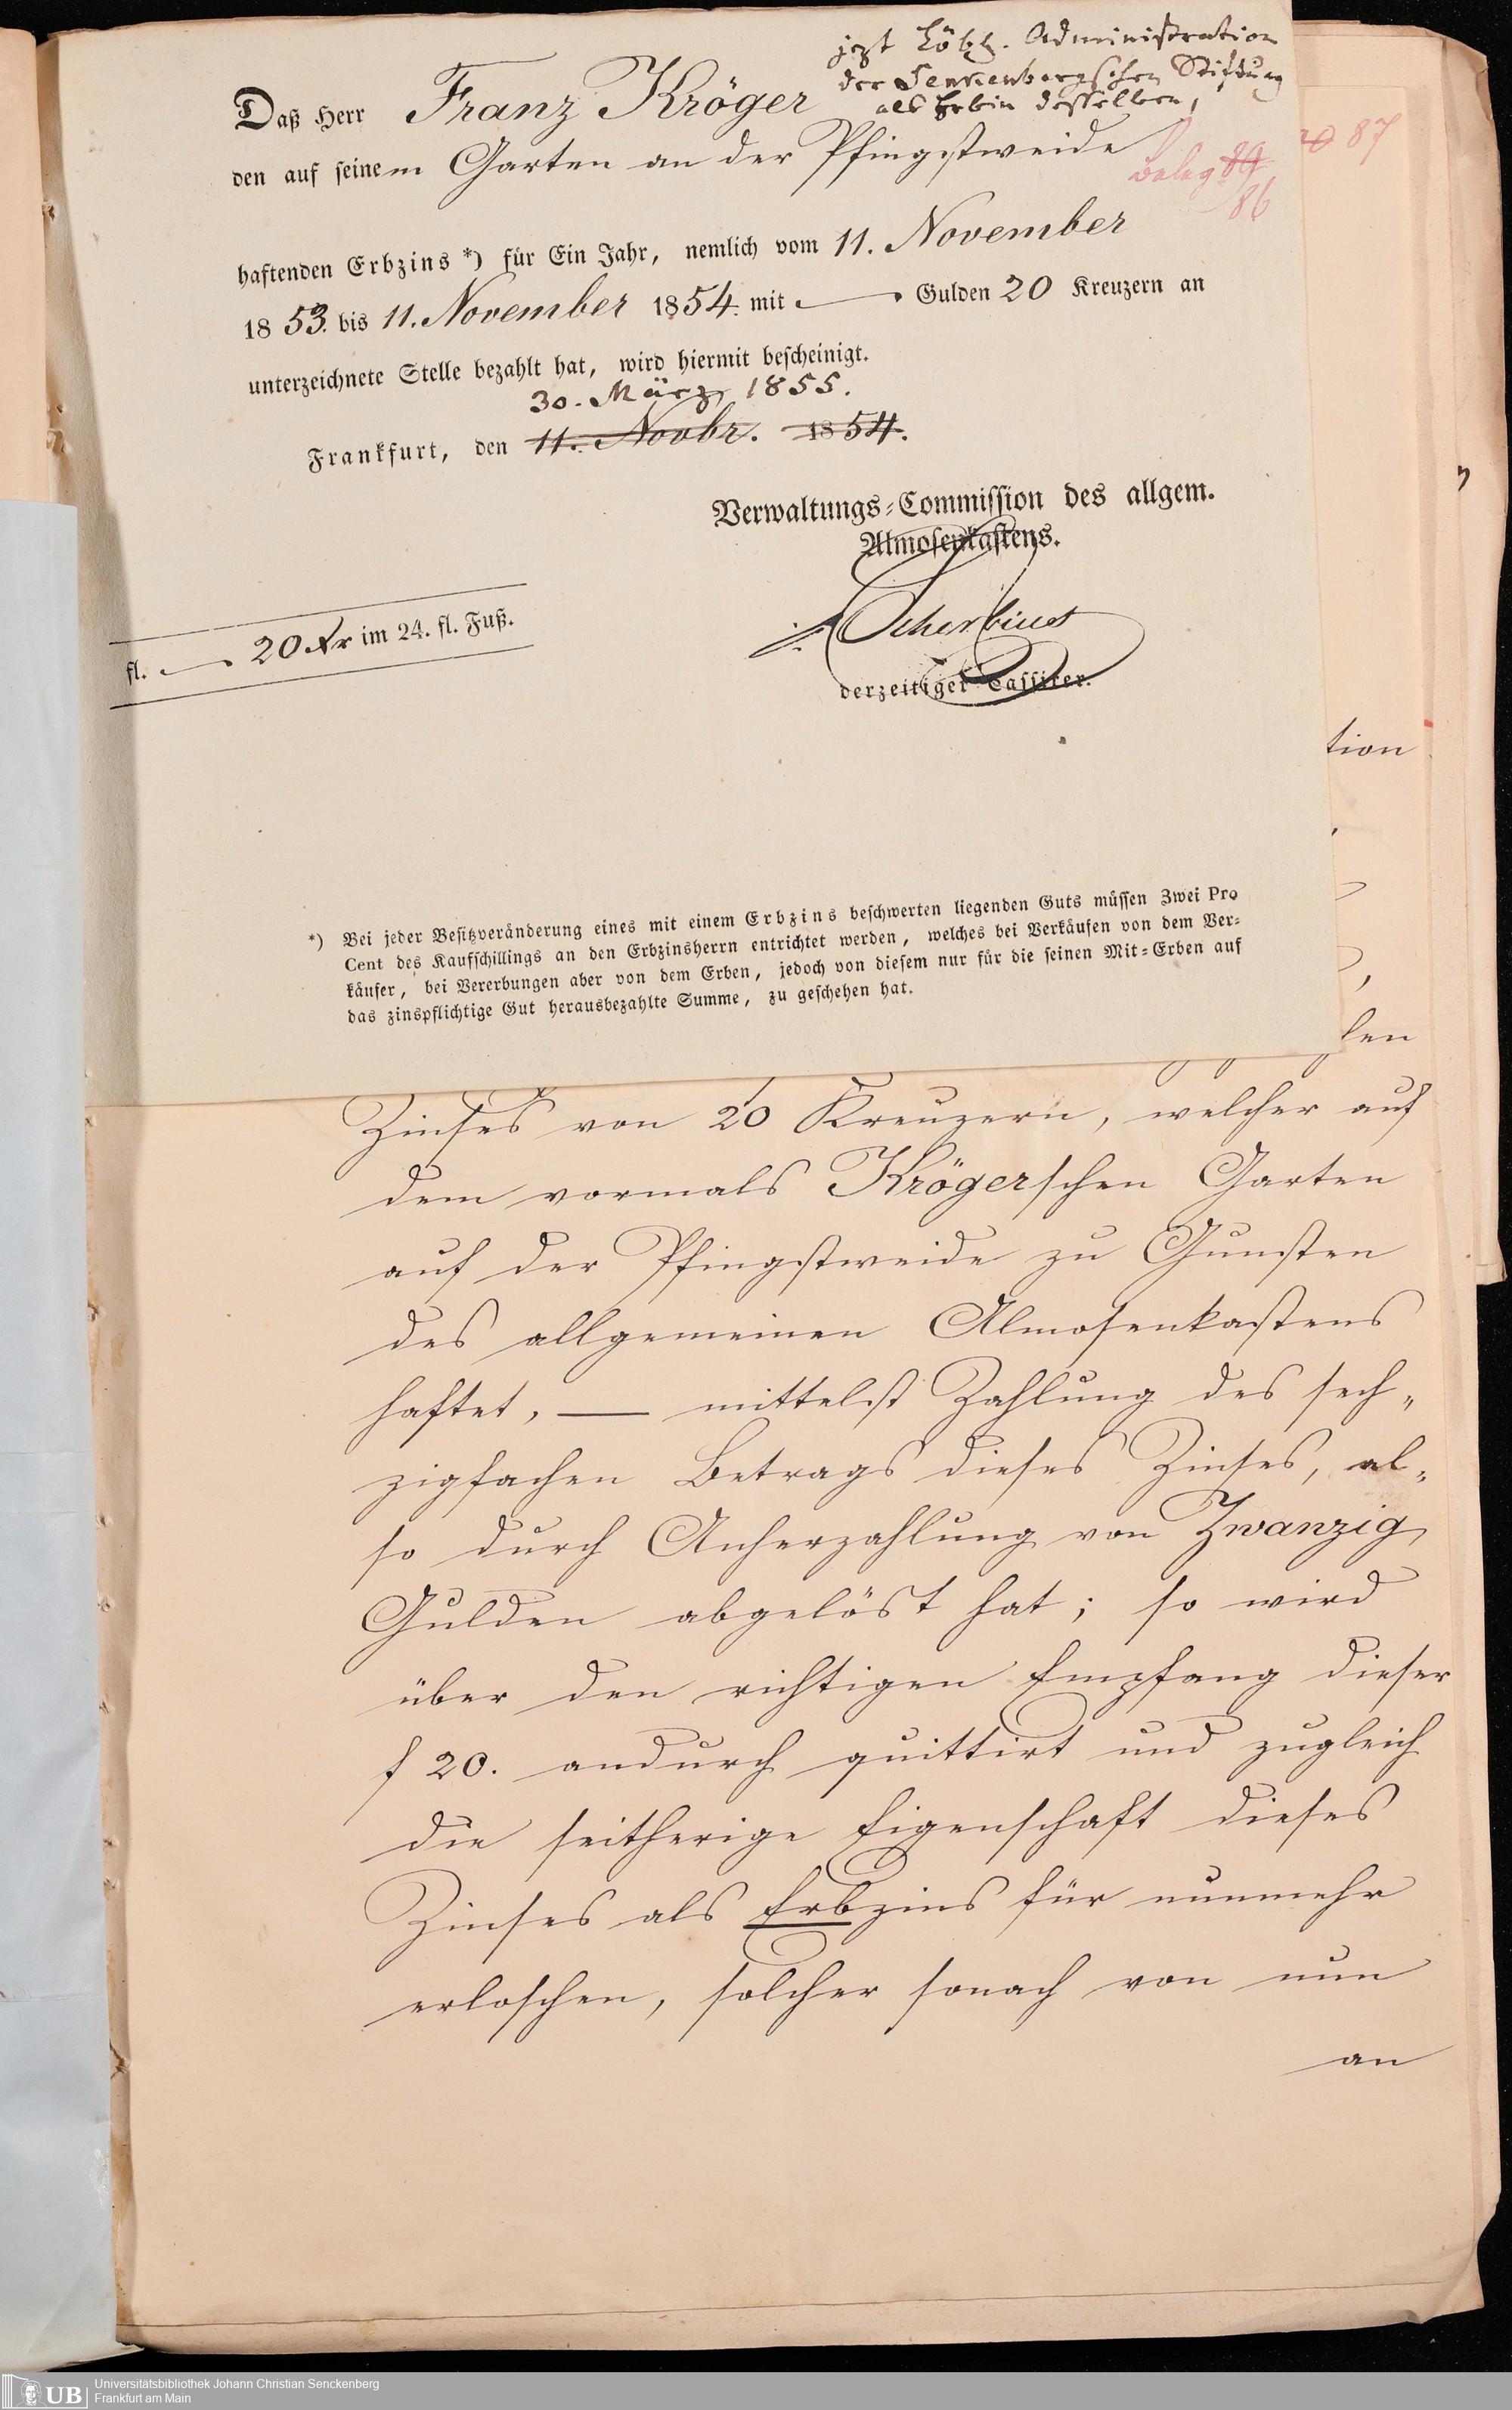 jezt Löbl. Administration
der Senckenbergschen Stiftung
als Erbin desselben,
Daß Herr Franz Kröger
den auf seinem Garten an der Pfingstweide
Beleg 89
86
no 87
haftenden Erbzins *) für Ein Jahr, nemlich vom 11. November
1853. bis 11. November 1854. mit — Gulden 20 Kreuzern an
unterzeichnete Stelle bezahlt hat, wird hiermit bescheinigt.
30. März 1855.
Frankfurt, den 11. Novbr. 1854.
Verwaltungs-Commission des allgem.
Almosenkastens.
Scherbius
derzeitiger Cassirer.
fl. — 20 Xr im 24. fl. Fuß.
*) Bei jeder Besitzveränderung eines mit einem Erbzins beschwerten liegenden Guts müssen Zwei Pro
Cent des Kaufschillings an den Erbzinsherrn entrichtet werden, welches bei Verkäufen von dem Ver-
käufer, bei Vererbungen aber von dem Erben, jedoch von diesem nur für die seinen Mit-Erben auf
das zinspflichtige Gut herausbezahlte Summe, zu geschehen hat.
tion
len
Zinses von 20 Kreuzern, welcher auf
dem vormals Krögerschen Garten
auf der Pfingstweide zu Gunsten
des allgemeinen Almosenkastens
haftet, — mittelst Zahlung des sech-
zigfachen Betrags dieses Zinses, al-
so durch Anherzahlung von Zwanzig
Gulden abgelöst hat; so wird
über den richtigen Empfang dieser
f 20. andurch quittirt und zugleich
die seitherige Eigenschaft dieses
Zinses als Erbzins für nunmehr
erloschen, solcher sonach von nun
an
UB
Universitätsbibliothek Johann Christian Senckenberg
Frankfurt am Main